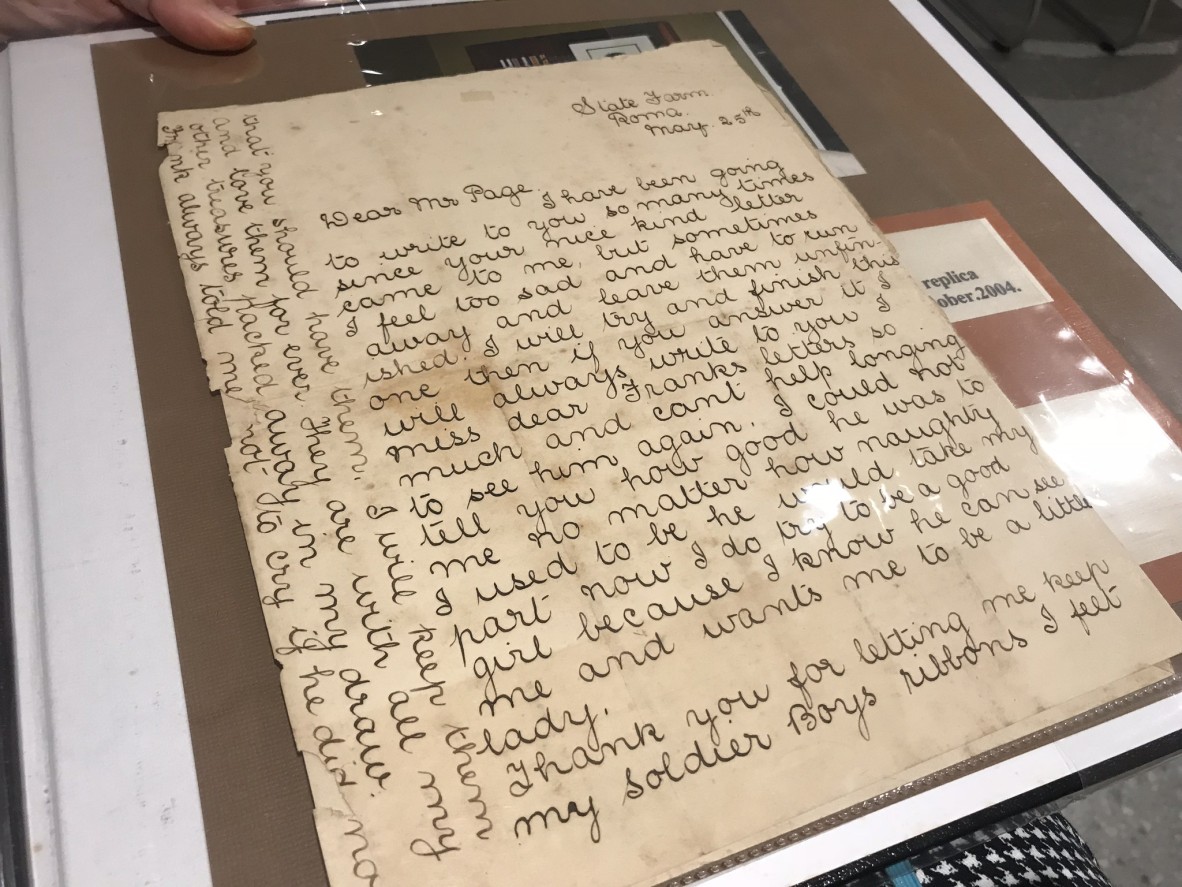 State Farm.
Roma.
May. 25th
Dear Mr Page.
I have been going
to write to you so many times
since your nice kind letter
came to me, but sometimes
I feel too sad and have to run
away and leave them unfin-
ished. I will try and finish this
one then if you answer it I
will always write to you I
miss dear Franks letters so
much and cant help longing
to see him again. I could not
tell you how good he was to
me no matter how naughty
I used to be he would take my
part now I do try to be a good
girl because I know he can see
me and wants me to be a little
lady.
Thank you for letting me keep
my soldier Boys ribbons I feel
that you should have them. I will keep them
and love them for ever. They are with all my
other treasures packed away in my draw.
always told me not to cry if he did
replica
ober.2004.